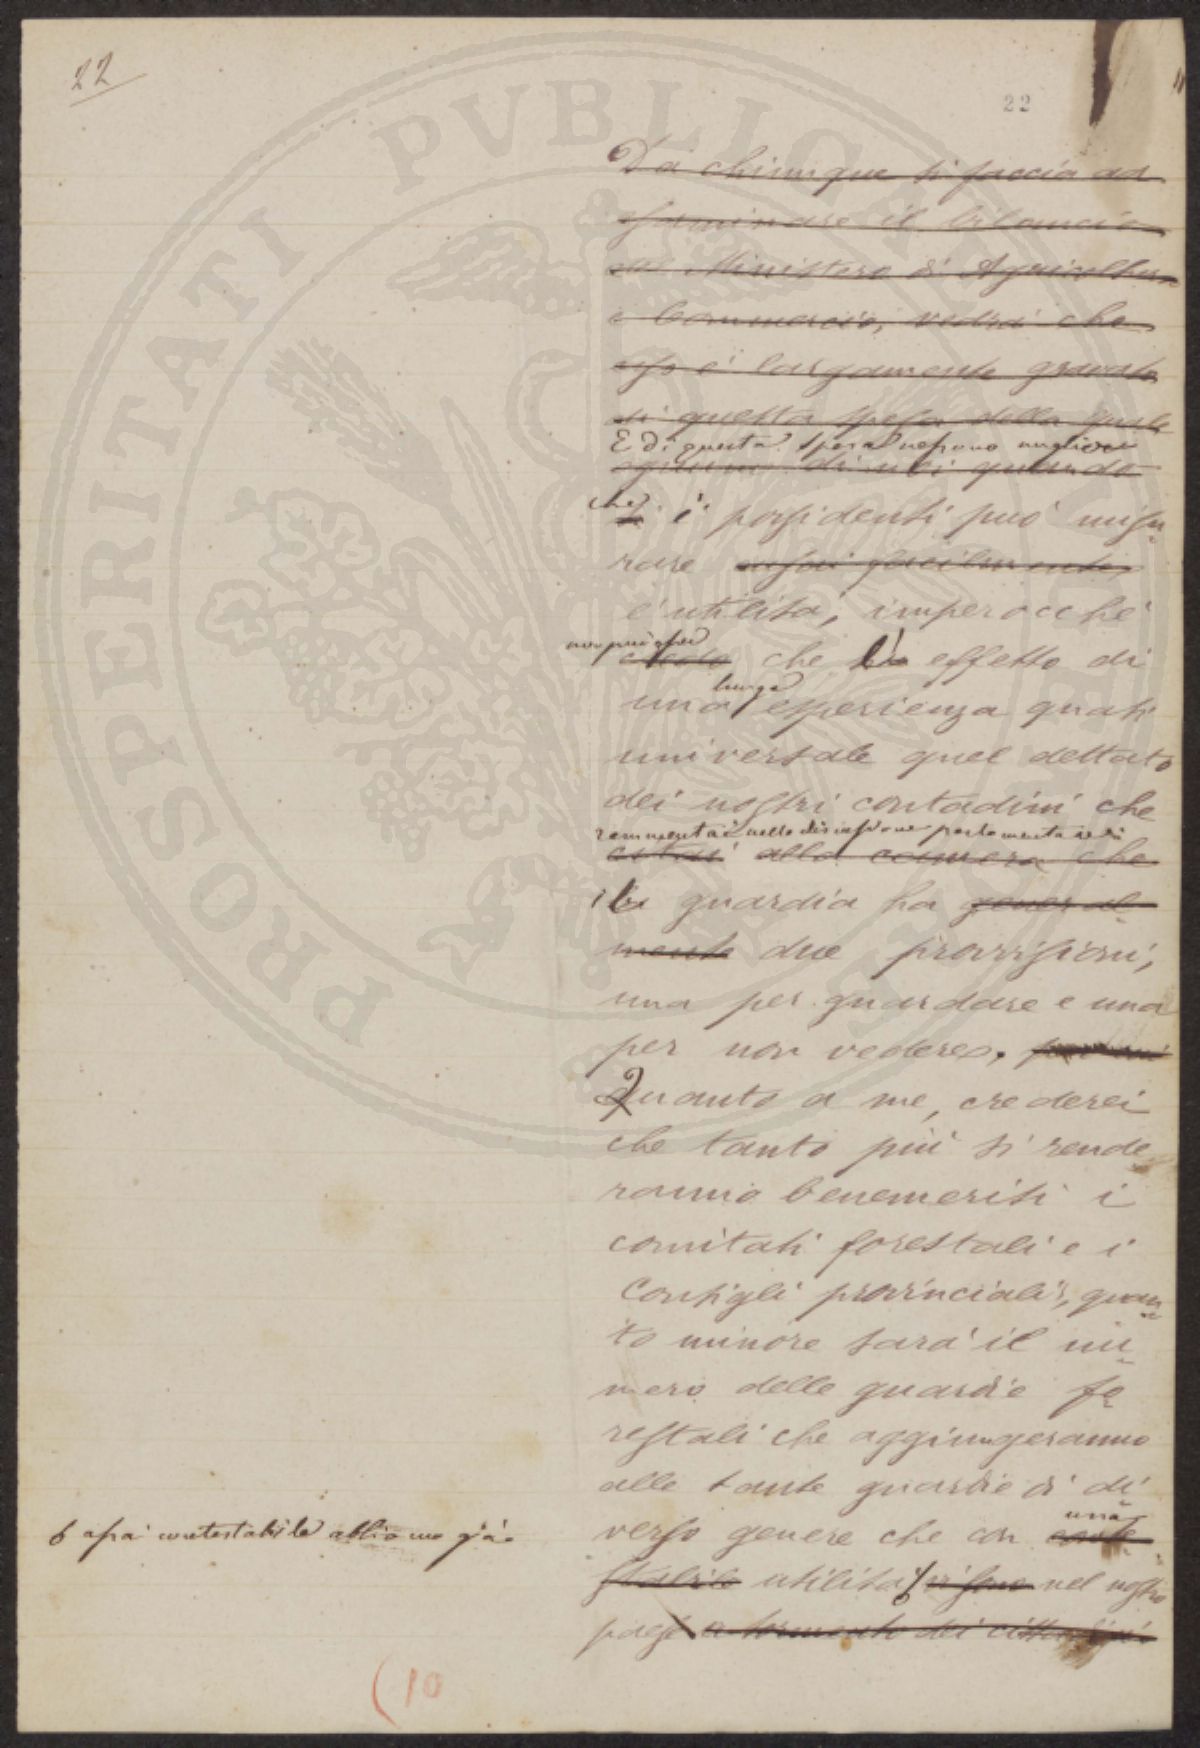 22
22
Da chiunque si faccia ad
esaminare il bilancio
del Ministero di Agricoltura
e Commercio, vedrai che
esso è largamente gravato
di questa spesa della quale
E di questa spesa nessuno meglio
ognuno di noi quando
che
i possidenti può misu
rare assai facilmente
l'utilità, imperocchè
non può esser
che effetto di
lunga
una esperienza quasi
universale quel dettato
dei nostri contadini che
rammentai nella discussione parlamentare di
citai alla camera che
la guardia ha general
mente due provvisioni,
una per guardare e una
per non vedere.
Quanto a me, crederei
che tanto più si rende
ranno benemeriti i
comitati forestali e i
Consigli provinciali, quan
to minore sarà il nu
mero delle guardie fo
restali che aggiungeranno
alle tante guardie di di
una
verso genere che con conte
stabile utilità nel nostro
paese a tormento dei cittadini
assai contestabile abbiamo già
(10
PROSPERITATI PVBLICAE